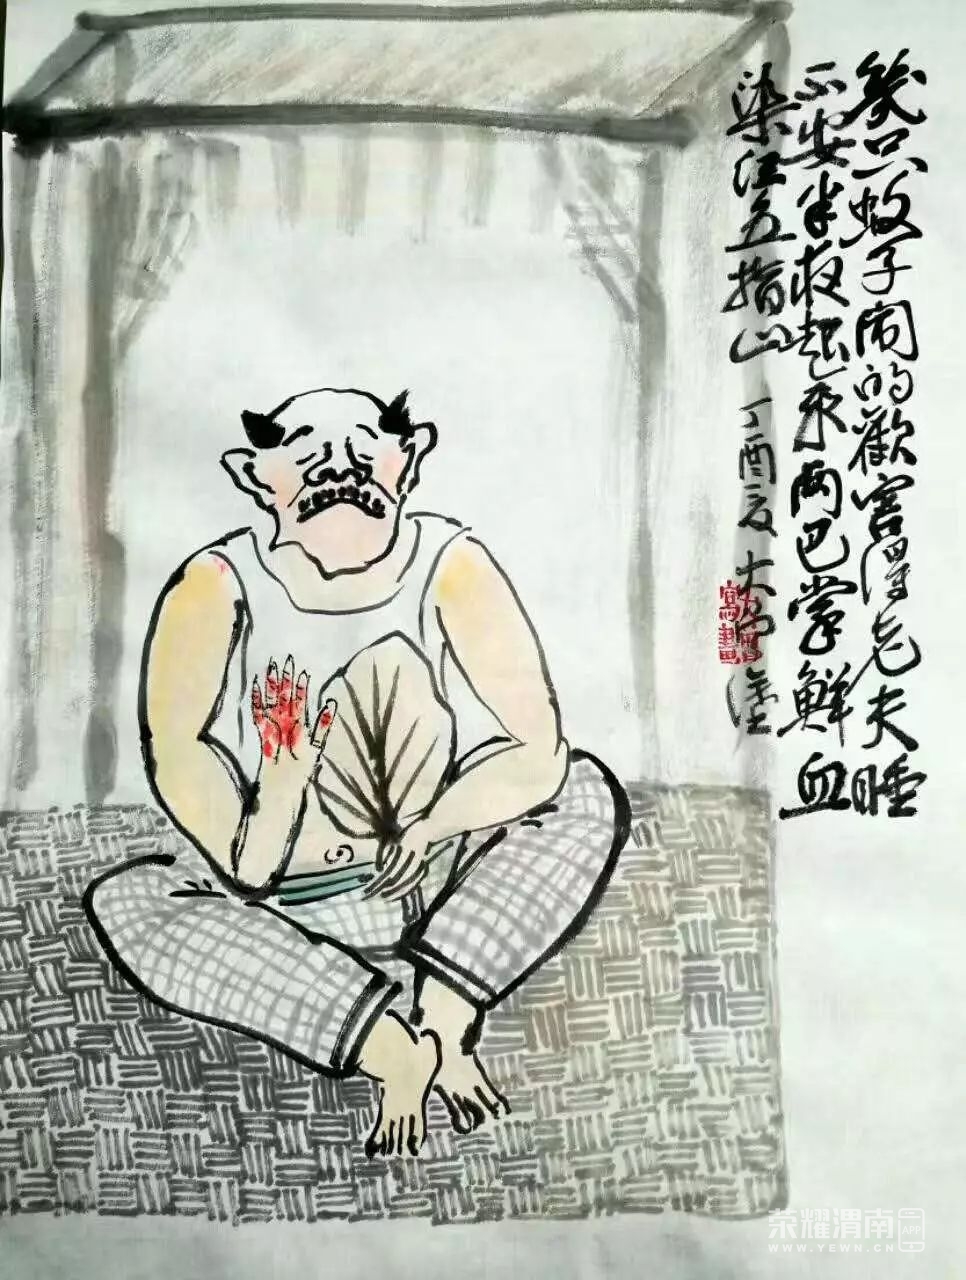 几只蚊子闹的歡害得老夫睡
不安半夜起来两巴掌鲜血
染红五指山 丁酉夏 大
荣耀渭南 APP
WWW.YEWN.CN